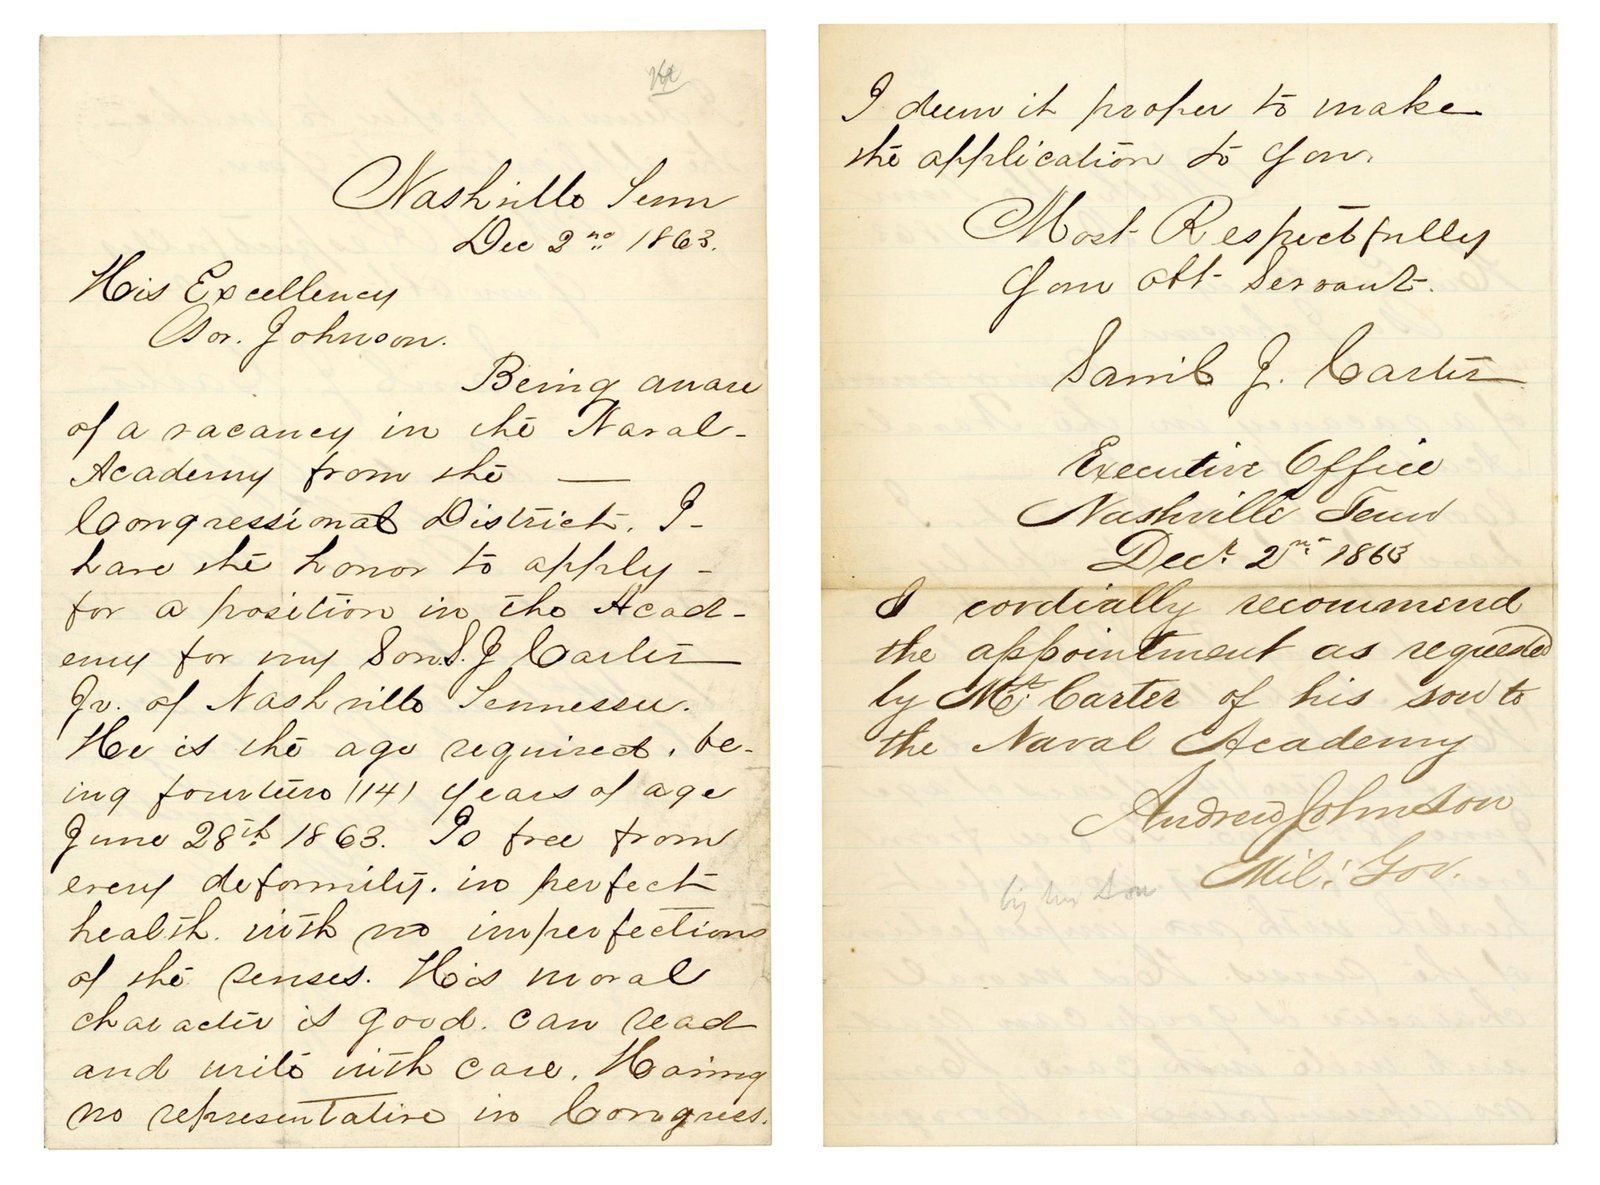 Nashville Tenn
Dec 2nd 1863.
His Excellency
Gov. Johnson.
Being aware
of a vacancy in the Naval-
Academy from the —
Congressional District. I-
have the honor to apply-
for a position in the Acad-
emy for my Son S. J Carter
Jr. of Nashville Tennessee.
He is the age required, be-
ing fourteen (14) years of age
June 28th 1863. Is free from
every deformity. in perfect
health. with no imperfections
of the senses. His moral
character is good. can read
and write with care. Having
no representative in Congress.
I deem it proper to make
the application to you.
Most Respectfully
Your obt Servant.
Saml J. Carter
Executive Office
Nashville Tenn
Decr. 2nd 1863
I cordially recommend
the appointment as requested
by Mr. Carter of his son to
the Naval Academy
Andrew Johnson
Mil: Gov.
by his Son